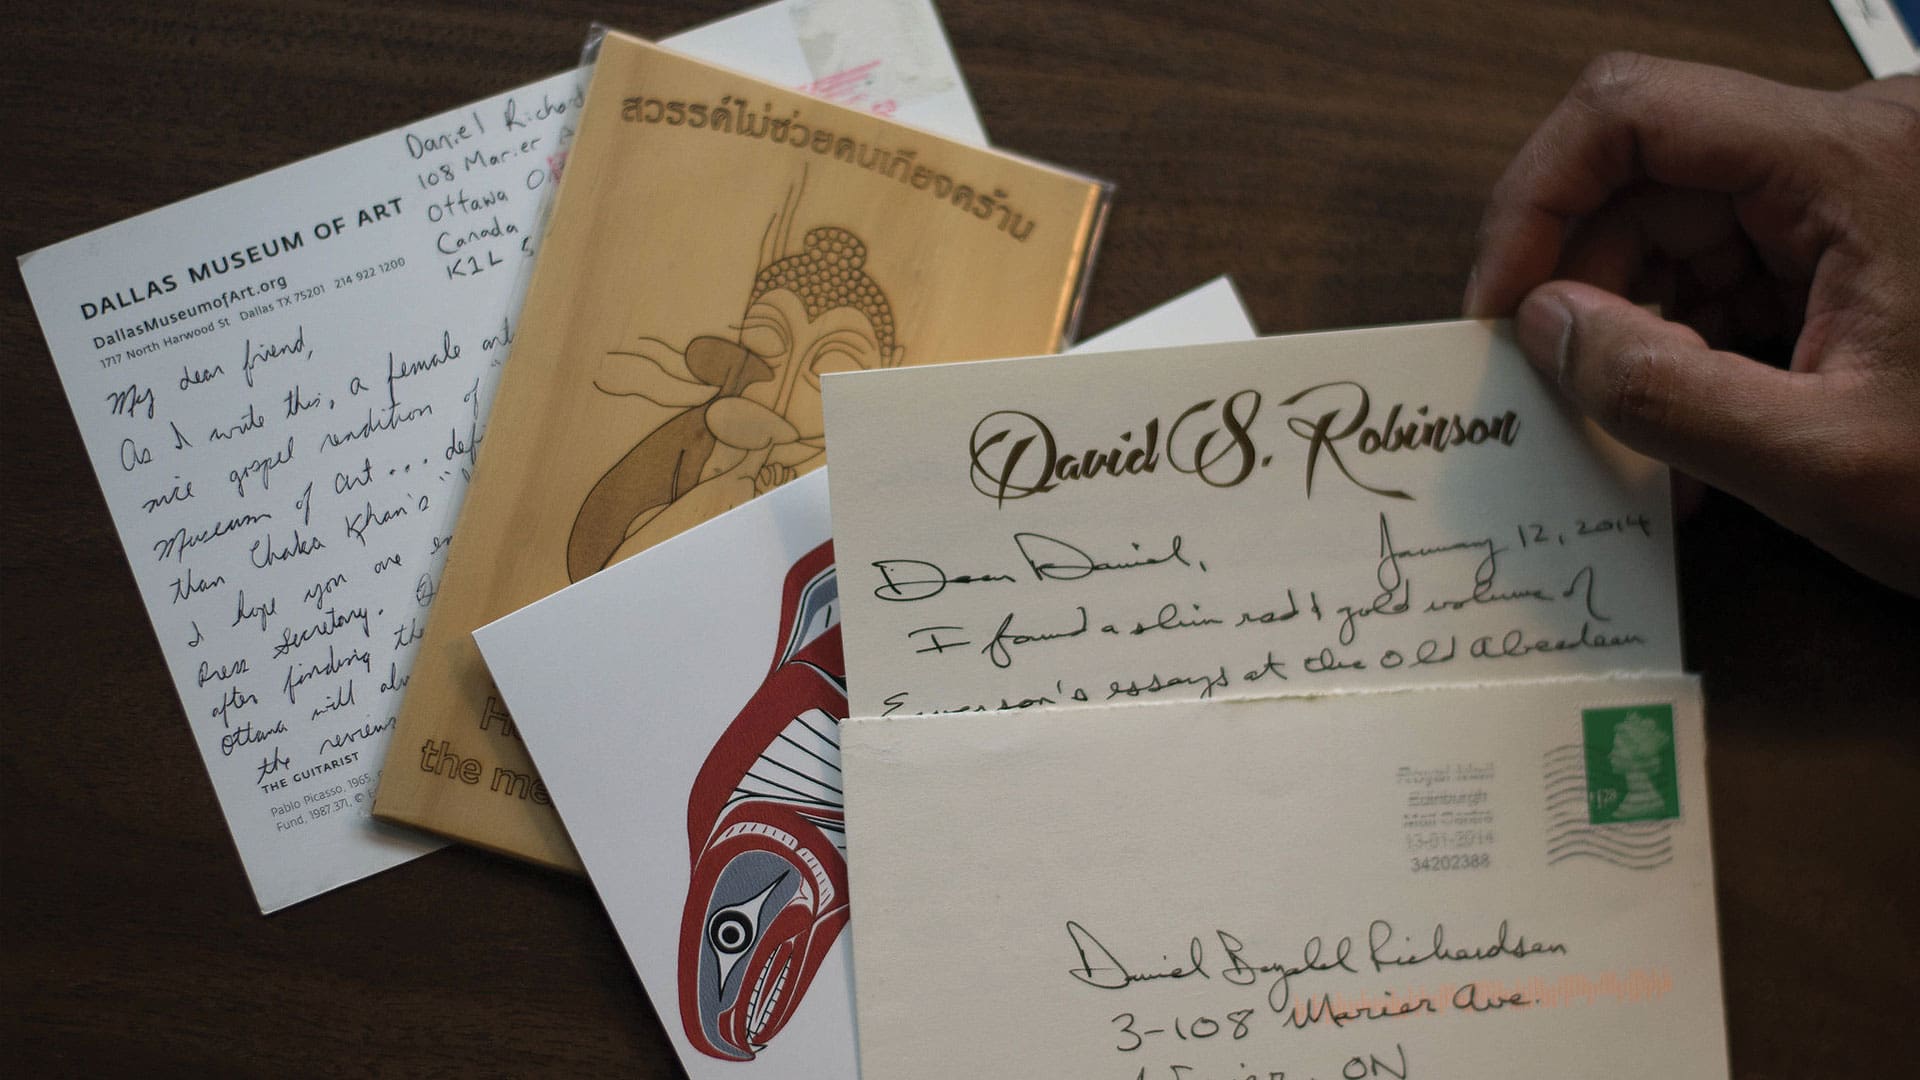 DALLAS MUSEUM OF ART
DallasMuseumofArt.org
1717 North Harwood St Dallas TX 75201 214 922 1200
Daniel Richard
108 Marier A
Ottawa O
Canada
K1L 5
My dear friend,
As I write this, a female
nice gospel rendition of "
Museum of art... defi
than Chaka Khan's "
I hope you are
Press Secretary.
after finding the
Ottawa will
the reviews
THE GUITARIST
Pablo Picasso, 1965,
Fund, 1987.371, ©
สวรรค์ไม่ช่วยคนเกียจคร้าน
H
the me
David S. Robinson
January 12, 2014
Dear Daniel,
I found a slim red & gold volume of
Emerson's essays at the Old Aberdeen
Royal Mail
Edinburgh
Mail Centre
13-01-2014
34202388
£1.28
Daniel Richardson
3-108 Marier Ave.
ON